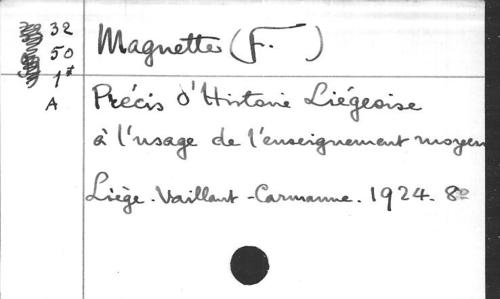 32
50
1*
A
Magnette (F. )
Précis d'Histoire Liégeoise
à l'usage de l'enseignement moyen
Liège. Vaillant-Carmanne. 1924. 8º